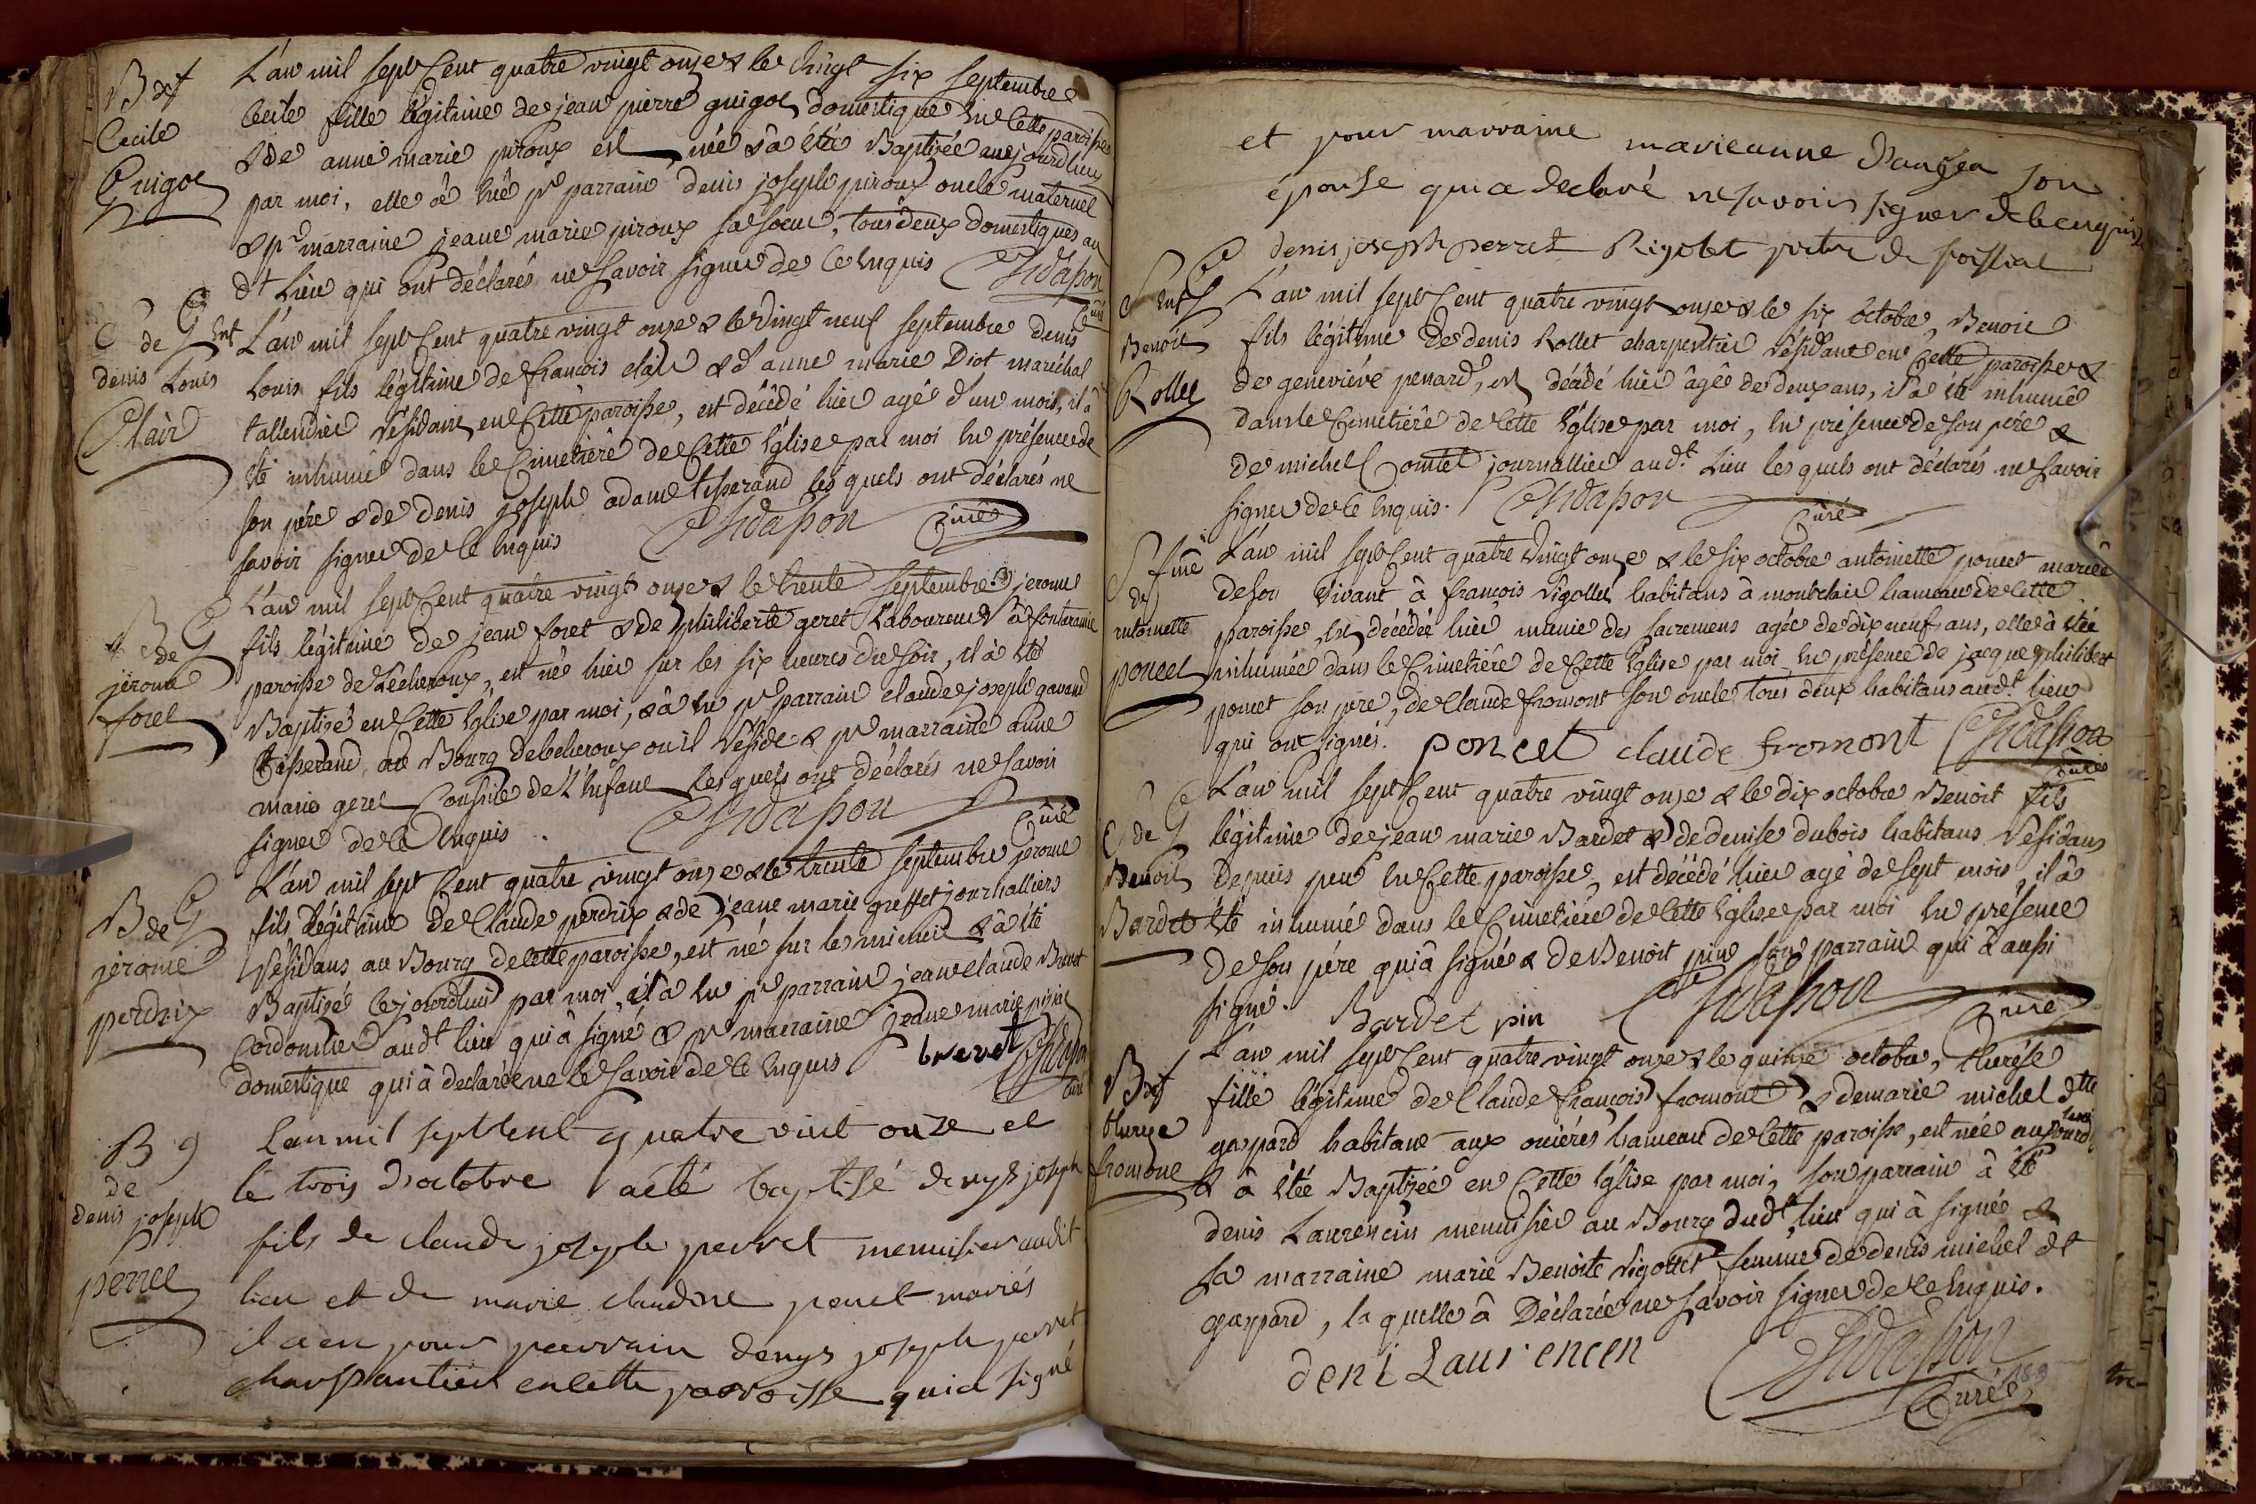 B de f
Cecile
Guigot
L'an mil sept Cent quatre vingt onze & le vingt six septembre
Cecile fille légitime de jean pierre guigot domestique en Cette paroisse
& de anne marie piroux est née & a été Baptizée aujourdhuy
par moi, elle a eue pr parrain denis joseph piroux oncle maternel
& pr marraine jeane marie piroux sa soeur, tous deux domestiques au
dt Lieu qui ont déclarés ne savoir signer de ce Enquis Chdapon
Curé
de Ent
denis Louis
Clair
L'an mil sept Cent quatre vingt onze & le vingt neuf septembre denis
Louis fils légitime de francois clair & d'anne marie Diot maréchal
tallendier résidant en Cette paroisse, est décédé hier agé d'un mois, il à
été inhumé dans le Cimetière de Cette Eglise par moi en présence de
son père & de denis joseph adam tisserand lesquels ont déclarés ne
savoir signer de ce Enquis Chdapon Curé
B de G
jérome
foret
L'an mil sept Cent quatre vingt onze & le trente septembre jerome
fils légitime de jean foret & de philiberte geret Laboureur à fontaramie
paroisse de Lécheroux, est né hier sur les six heures du soir, il à été
Baptizé en Cette Eglise par moi, & à eu pr parrain claude joseph gavand
tisserand au Bourg de lécheroux ou il réside & pr marraine anne
marie geret Cousine de l'Enfant lesquels ont déclarés ne savoir
signer de ce Enquis Chdapon Curé
B de G
jérome
perdrix
L'an mil sept Cent quatre vingt onze & le trente septembre jerome
fils légitime de Claude perdrix & de jeane marie greffet journalliers
résidans au Bourg de cette paroisse, est né sur le minuit & à été
Baptizé cejourdhui par moi, il a eu pr parrain jean claude Brevet
Cordonnier audt lieu qui à signé & pr marraine jeane marie
domestique qui à declarée ne le savoir de ce Enquis brevet Chdapon
curé
B g
de
denis joseph
perret
Lan mil sept cent quatre vint onze et
le trois d'octobre a été baptisé denys joseph
fils de claude joseph perret menuisier audit
lieu et de marie claudine ponct mariés
il a eu pour parrain denys joseph perret
charpantier en cette parroisse qui a signé
et pour marraine marie anne dangea son
épouse qui a declaré ne savoir signer de ce enquise
denis joseph perret Rigolet prêtre de foissiat
Ent
Benoit
Rollet
L'an mil sept Cent quatre vingt onze & le six octobre, Benoit
fils légitime de denis Rollet charpentier résidant en Cette paroisse &
de geneviéve penard, est décédé hier âgé de deux ans, il à été inhumé
dans le Cimetière de Cette Eglise par moi, en présence de son père &
de michel Comtet journallier audt Lieu lesquels ont déclarés ne savoir
signer de ce Enquis. Chdapon Curé
S fme
de
antoinette
poncet
L'an mil sept Cent quatre vingt onze & le six octobre antoinette poncet mariée
de son vivant à francois rigollet habitans à montclair hameau de Cette
paroisse est décédée hier munie des sacremens agée de dix neuf ans, elle à étée
inhumée dans le Cimetière de Cette Eglise par moi en présence de jacque philibert
poncet son père, de Claude fromont son oncle tous deux habitans audt lieu
qui ont signés. poncet claude fromont Chdapon
Curé
de G
Benoit
Bardet
L'an mil sept Cent quatre vingt onze & le dix octobre Benoit fils
légitime de jean marie Bardet & de denise dubois habitans résidans
depuis peu en Cette paroisse, est décédé hier agé de sept mois, il à
été inhumé dans le Cimetière de Cette Eglise par moi en présence
de son père qui à signé & de Benoit pin son parrain qui à aussi
signé. Bardet pin Chdapon Curé
B de f
thereze
fromont
L'an mil sept Cent quatre vingt onze & le quinze octobre, thérése
fille légitime de Claude françois fromont & de marie michel dtte
gaspard habitans aux oriéres hameau de Cette paroisse, est née aujourdhui
& à étée Baptizée en Cette Eglise par moi, son parrain à été
denis Laurencin menuisier au Bourg dudt lieu qui à signée &
sa marraine marie Benoite rigollet femme de denis michel dt
gaspard, la quelle à Déclarée ne savoir signer de ce Enquis.
deni Laurencen Chdapon
Curé